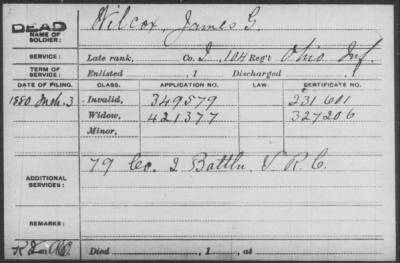 DEAD
NAME OF SOLDIER: Wilcox, James G.
SERVICE: Late rank, Co. I, 104 Reg't Ohio Inf.
TERM OF SERVICE: Enlisted , 1 Discharged , 1
DATE OF FILING. CLASS. APPLICATION NO. LAW. CERTIFICATE NO.
1880 Mch. 3 Invalid, 349579 231601
Widow, 421377 327206
Minor,
ADDITIONAL SERVICES: 79 Co. 2 Battln. V.R.C.
REMARKS:
Died , 1 , at